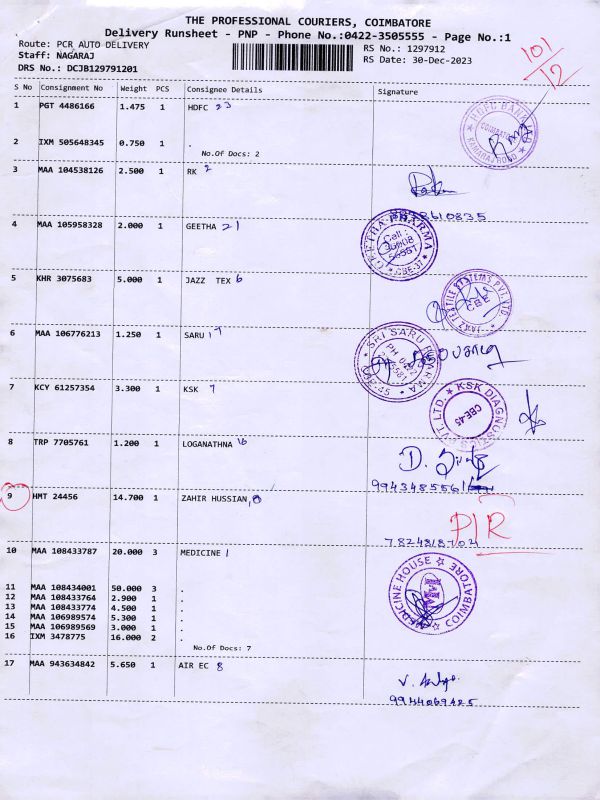 THE PROFESSIONAL COURIERS, COIMBATORE
Delivery Runsheet - PNP - Phone No.:0422-3505555 - Page No.:1
Route: PCR AUTO DELIVERY RS No.: 1297912
Staff: NAGARAJ RS Date: 30-Dec-2023
DRS No.: DCJB129791201
101/12
S No Consignment No Weight PCS Consignee Details Signature
1 PGT 4486166 1.475 1 HDFC 23
HDFC BANK LTD COIMBATORE KAMARAJ ROAD
2 IXM 505648345 0.750 1 .
No.Of Docs: 2
3 MAA 104538126 2.500 1 RK 2
4 MAA 105958328 2.000 1 GEETHA 21
GEETHA PHARMA Call: CBE-37
5 KHR 3075683 5.000 1 JAZZ TEX 6
JAZZ TEXTILE SYSTEMS PVT. LTD. CBE
6 MAA 106776213 1.250 1 SARU 17
SRI SARU PHARMA CBE-45
7 KCY 61257354 3.300 1 KSK 7
KSK DIAGNOSTICS PVT. LTD. CBE-45
8 TRP 7705761 1.200 1 LOGANATHNA 16
9943485561
9 HMT 24456 14.700 1 ZAHIR HUSSIAN, 8
P/R
7824818704
10 MAA 108433787 20.000 3 MEDICINE 1
MEDICINE HOUSE COIMBATORE
11 MAA 108434001 50.000 3 .
12 MAA 108433764 2.900 1 .
13 MAA 108433774 4.500 1 .
14 MAA 106989574 5.300 1 .
15 MAA 106989569 3.000 1 .
16 IXM 3478775 16.000 2 .
No.Of Docs: 7
17 MAA 943634842 5.650 1 AIR EC 8
9944069425